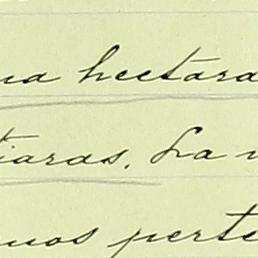 na hectara
tiaras. La
nos perte